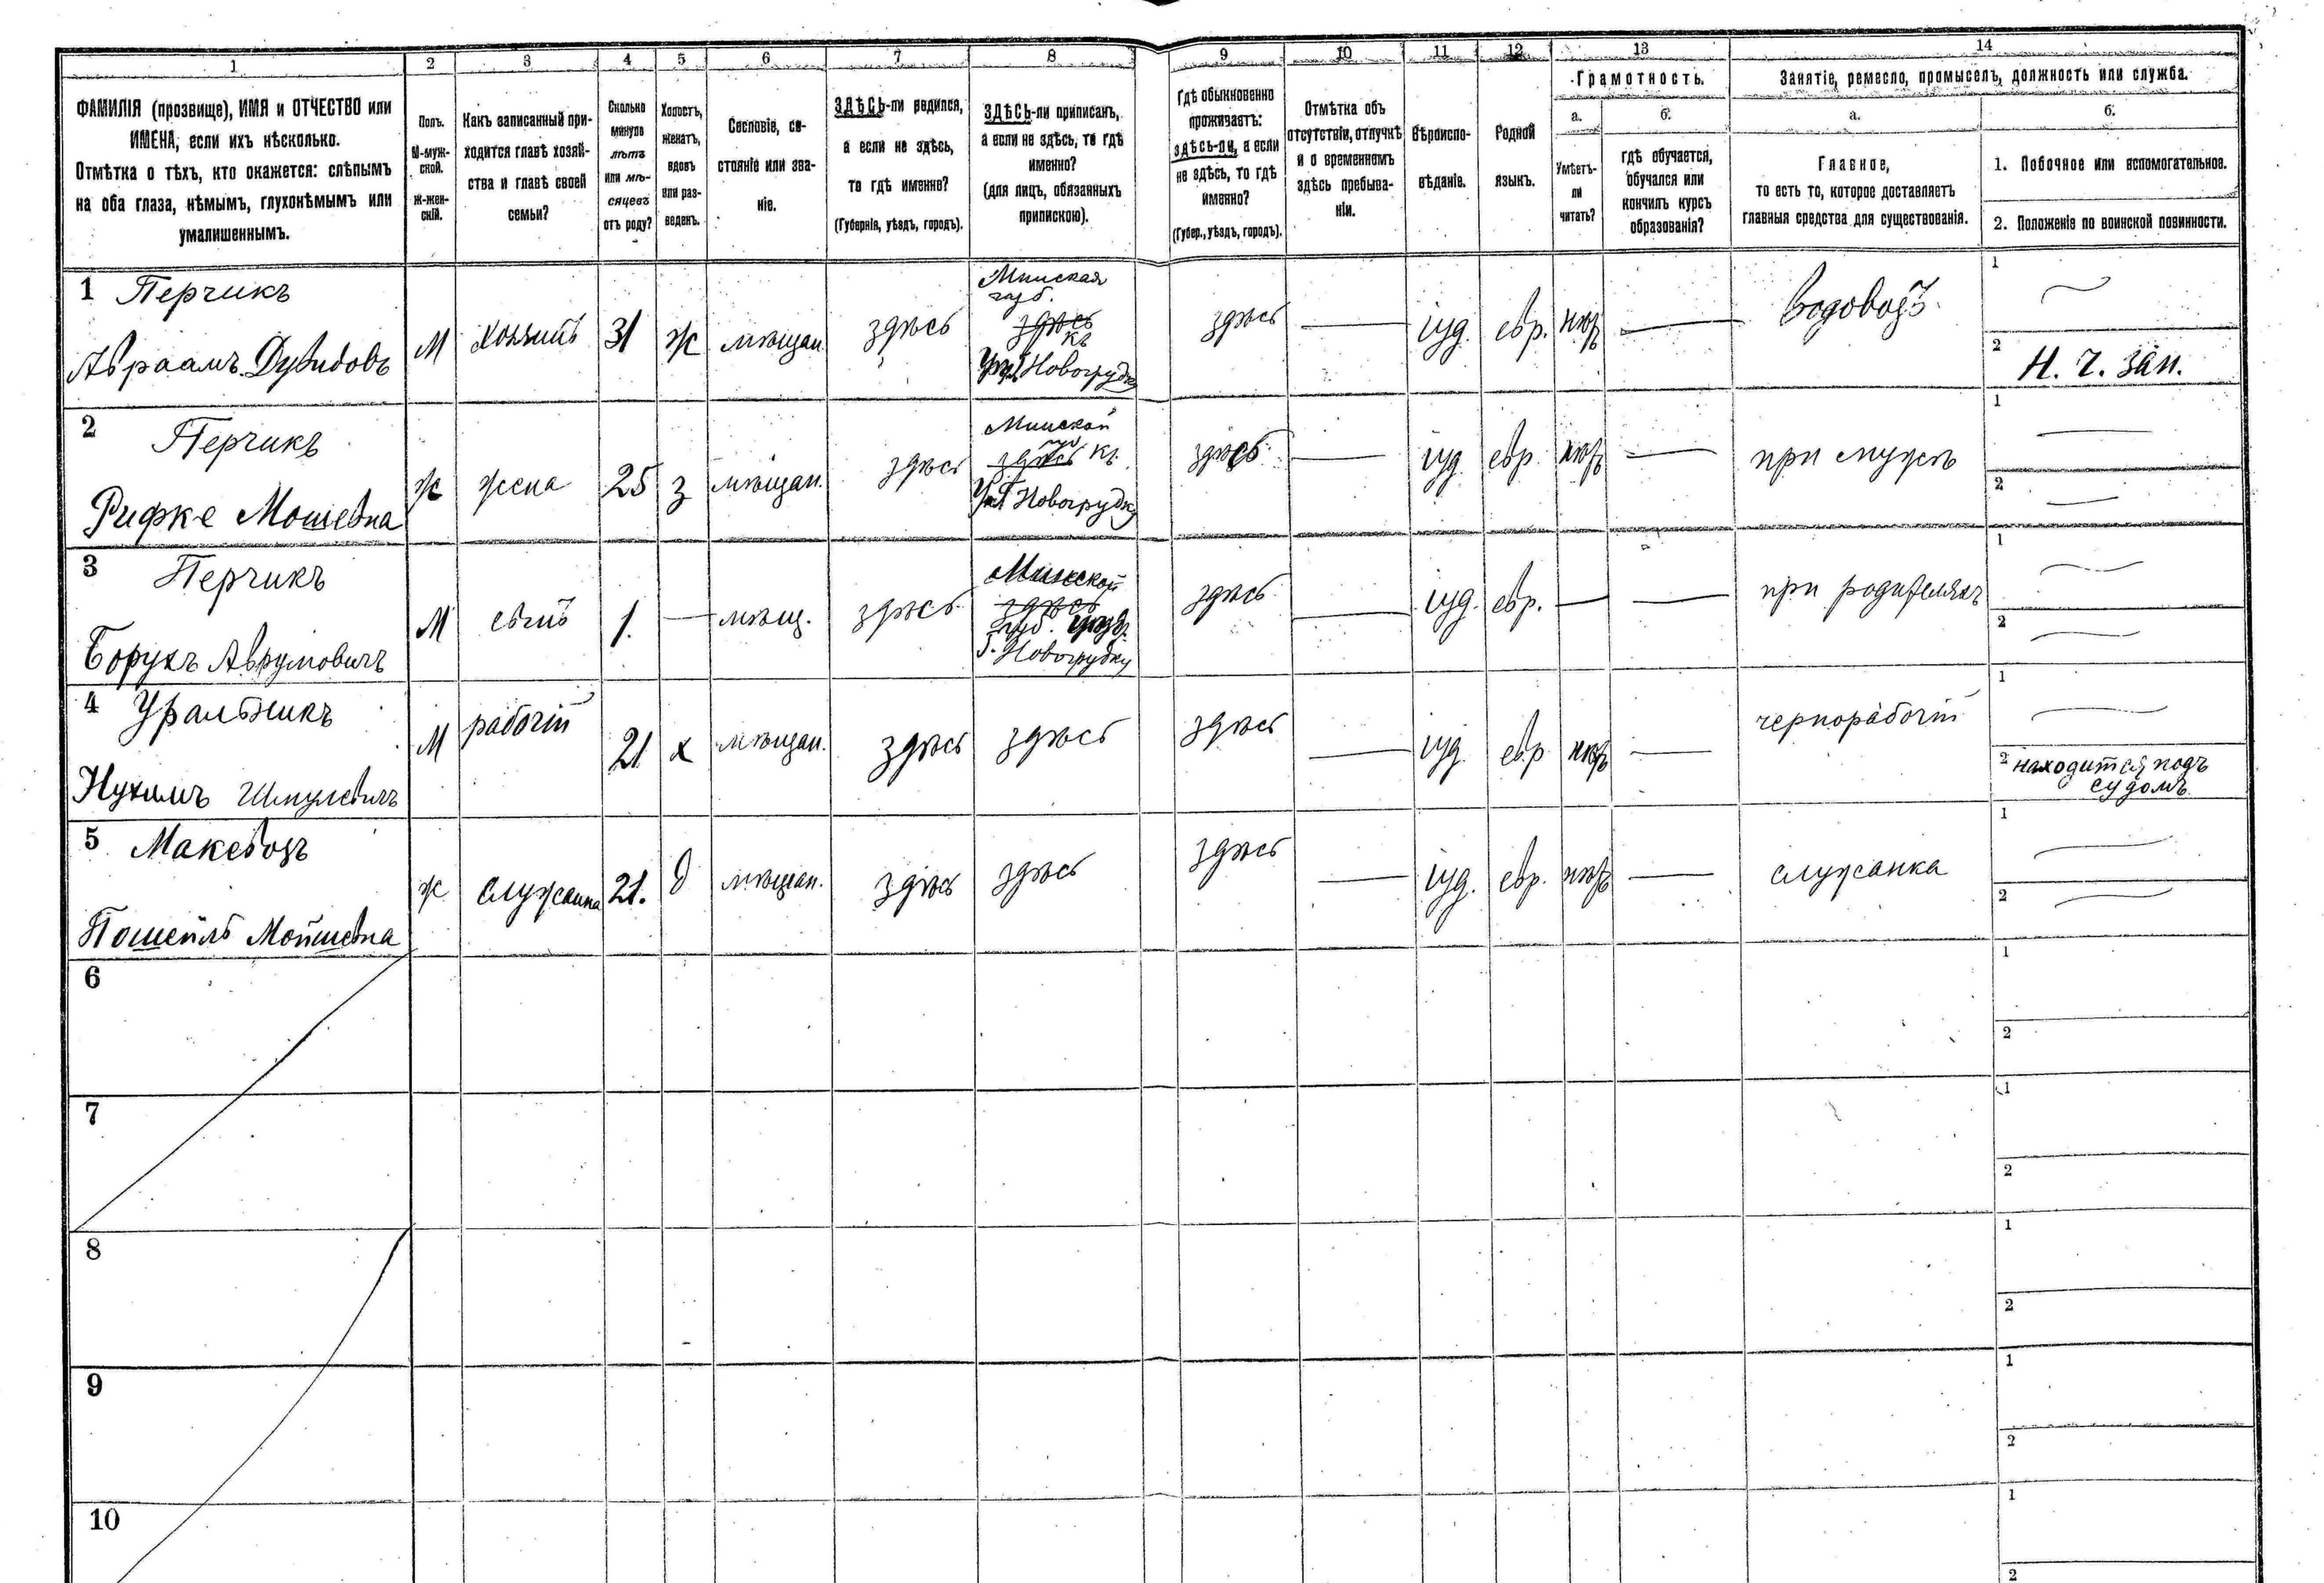 1 2 3 4 5 6 7 8 9 10 11 12 13 14
ФАМИЛІЯ (прозвище), ИМЯ и ОТЧЕСТВО или
ИМЕНА, если ихъ нѣсколько.
Отмѣтка о тѣхъ, кто окажется: слѣпымъ
на оба глаза, нѣмымъ, глухонѣмымъ или
умалишеннымъ.
Полъ.
М-муж-
ской.
Ж-жен-
скій.
Какъ записанный при-
ходится главѣ хозяй-
ства и главѣ своей
семьи?
Сколько
минуло
лѣтъ
или мѣ-
сяцевъ
отъ роду?
Холостъ,
женатъ,
вдовъ
или раз-
веденъ.
Сословіе, со-
стояніе или зва-
ніе.
ЗДѢСЬ-ли родился,
а если не здѣсь,
то гдѣ именно?
(Губернія, уѣздъ, городъ).
ЗДѢСЬ-ли приписанъ,
а если не здѣсь, то гдѣ
именно?
(для лицъ, обязанныхъ
припискою).
Гдѣ обыкновенно
проживаетъ:
здѣсь-ли, а если
не здѣсь, то гдѣ
именно?
(Губер., уѣздъ, городъ).
Отмѣтка объ
отсутствіи, отлучкѣ
и о временномъ
здѣсь пребыва-
ніи.
Вѣроиспо-
вѣданіе.
Родной
языкъ.
Грамотность.
а.
Умѣетъ-
ли
читать?
б.
гдѣ обучается,
обучался или
кончилъ курсъ
образованія?
Занятіе, ремесло, промыселъ, должность или служба.
а.
Главное,
то есть то, которое доставляетъ
главныя средства для существованія.
б.
1. Побочное или вспомогательное.
2. Положеніе по воинской повинности.
1 Перчикъ
Авраамъ Дувидовъ
М
хозяинъ
31
ж
мѣщан.
здѣсь
Минская
губ.
здѣсь
къ
Новогрудку
здѣсь
іуд.
евр.
нѣтъ
водовозъ
1
2
Н. ч. зап.
2 Перчикъ
Рифке Мошевна
ж
жена
25
з
мѣщан.
здѣсь
Минской
здѣсь къ
Новогрудку
здѣсь
іуд
евр.
нѣтъ
при мужѣ
1
2
3 Перчикъ
Борухъ Аврумовичъ
М
сынъ
1.
мѣщ.
здѣсь
Минской
здѣсь
губ. уѣзд.
г. Новогрудку
здѣсь
іуд.
евр.
при родителяхъ
1
2
4 Уральникъ
Нухимъ Шмулевичъ
М
рабочій
21
х
мѣщан.
здѣсь
здѣсь
здѣсь
іуд.
евр
нѣтъ
чернорабочій
1
2 находится подъ
судомъ
5 Макевозъ
Пошейлъ Мойшевна
ж
служанка
21.
д
мѣщан.
здѣсь
здѣсь
здѣсь
іуд.
евр.
нѣтъ
служанка
1
2
6
1
2
7
1
2
8
1
2
9
1
2
10
1
2